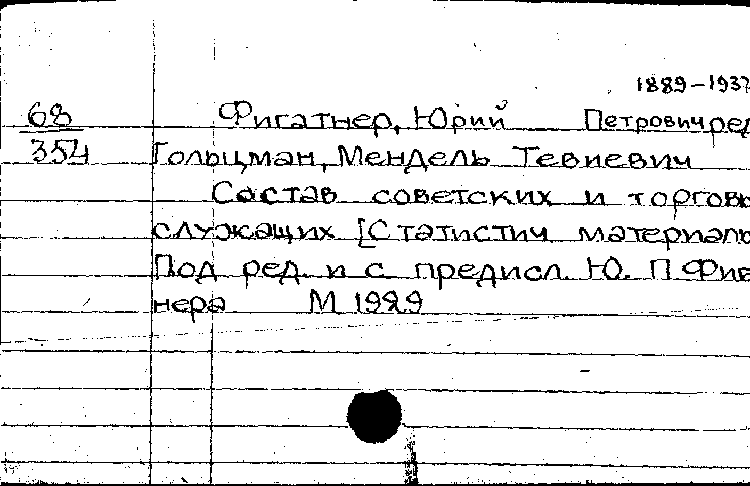 1889-1937
68 Фигатнер, Юрий Петрович ред
354 Гольцман, Мендель Тевиевич
Состав советских и торгов
служащих [Статистич материалы
Под ред. и с предисл. Ю. П Фиг
нера М 1929